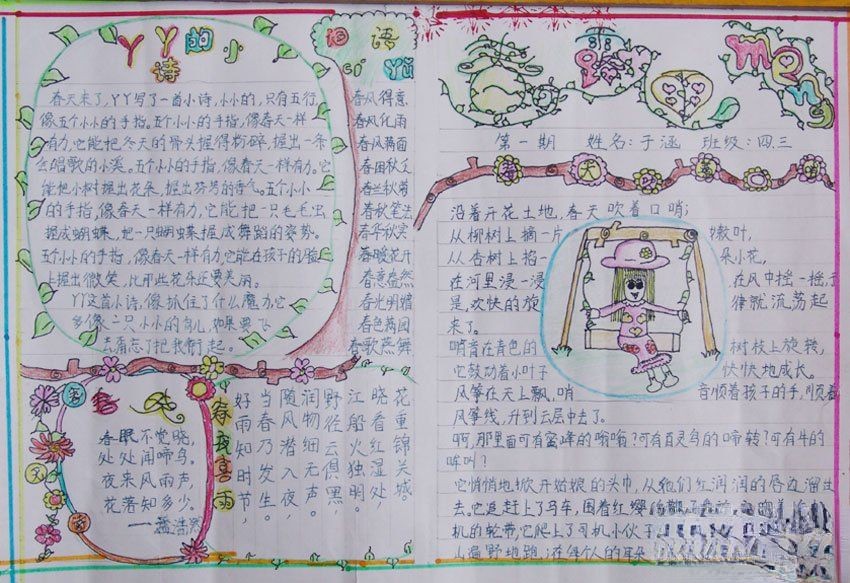 丫丫的小诗
春天来了,丫丫写了一首小诗,小小的,只有五行,
像五个小小的手指。五个小小的手指,像春天一样
有力,它能把冬天的骨头握得粉碎,握出一条
会唱歌的小溪。五个小小的手指,像春天一样有力。它
能把小树握出花朵,握出芬芳的香气。五个小小
的手指,像春天一样有力,它能把一只毛毛虫,
握成蝴蝶,把一只蝴蝶握成舞蹈的姿势。
五个小小的手指,像春天一样有力,它能在孩子的脸
上握出微笑,比那些花朵还要美丽。
丫丫这首小诗,像抓住了什么魔力,它
多像一只小小的鸟儿,如果要飞
去
词语
cí yǔ
春风得意
春风化雨
春风满面
春兰秋菊
春秋笔法
春华秋实
春暖花开
春意盎然
春光明媚
春色满园
春歌燕舞
春眠不觉晓,
处处闻啼鸟。
夜来风雨声,
花落知多少。
——孟浩然
春夜喜雨
好雨知时节,
当春乃发生。
随风潜入夜,
润物细无声。
野径云俱黑,
江船火独明。
晓看红湿处,
花重锦关城。
meng
第一期 姓名:于涵 班级:四.三
春天吹着口哨
沿着开花土地,春天吹着口哨;
从柳树上摘一片嫩叶,
从杏树上掐一朵小花,
在河里浸一浸 在风中摇一摇;于
是,欢快的旋律就流荡起
来了。
哨音在青色的树枝上旋转,
它鼓动着小叶子快快地成长。
风筝在天上飘,哨音顺着孩子的手,顺着
风筝线,升到云层中去了。
啊,那里面可有蜜蜂的嗡嗡?可有百灵鸟的啼转?可有牛的
哞叫?
它悄悄地掀开姑娘的头巾,从他们红润润的唇边溜出
去。它追赶上了马车,围着红缨
机的轮带,它爬上了司机小伙子
山遍野地跑,在每个人的耳朵